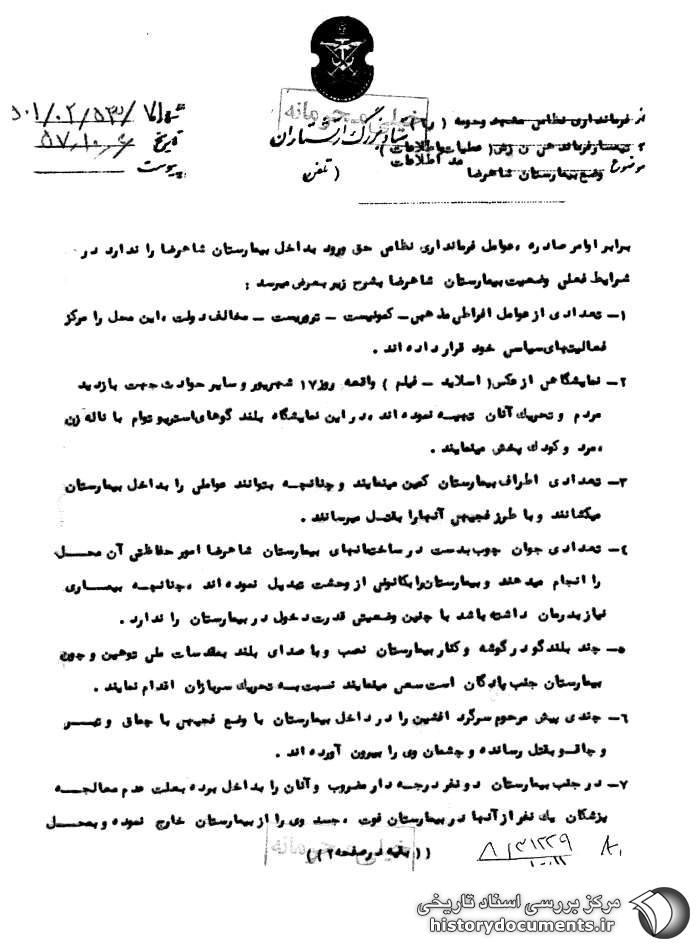 شماره ۵۰۱/۰۲/۵۳/۷۱
تاریخ ۵۷،۱۰،۶
پیوست
خیلی محرمانه
ستاد بزرگ ارتشتاران
از فرمانداری نظامی مشهد وحومه ( ر۲ )
تیمسار فرماندهی ( عملیات واطلاعات )
مد اطلاعات
( تلفن )
موضوع وضع بیمارستان شاهرضا
برابر اوامر صادره ، عوامل فرمانداری نظامی حق ورود بداخل بیمارستان شاهرضا را ندارد در
شرایط فعلی وضعیت بیمارستان شاهرضا بشرح زیر بعرض میرسد :
۱– تعدادی از عوامل افراطی مذهبی – کمونیست – تروریست – مخالف دولت ، این محل را مرکز
فعالیتهای سیاسی خود قرار داده اند .
۲– نمایشگاهی از عکس ( اسلاید – فیلم ) واقعه روز ۱۷ شهریور و سایر حوادث جهت بازدید
مردم و تحریک آنان تهیه نموده اند ، در این نمایشگاه بلند گوهای استریو توام با ناله زن
، مرد و کودک پخش مینمایند .
۳– تعدادی اطراف بیمارستان کمین مینمایند و چنانچه بتوانند عواملی را بداخل بیمارستان
میکشانند و با طرز فجیعی آنها را بقتل میرسانند .
٤– تعدادی جوان چوب بدست در ساختمانهای بیمارستان شاهرضا امور حفاظتی آن محل
را انجام میدهند و بیمارستان را بکانونی از وحشت تبدیل نموده اند ، چنانچه بیماری
نیاز بدرمان داشته باشد با چنین وضعیتی قدرت دخول در بیمارستان را ندارد .
۵– چند بلندگو در گوشه و کنار بیمارستان نصب و با صدای بلند بمقدسات ملی توهین و چون
بیمارستان جنب پادگان است سعی مینمایند نسبت به تحریک سربازان اقدام نمایند .
۶– چندی پیش مرحوم سرگرد افشین را در داخل بیمارستان با وضع فجیعی با چماق و تبر
و چاقو بقتل رسانده و چشمان وی را بیرون آورده اند .
۷– در جنب بیمارستان دو نفر درجه دار مضروب و آنان را بداخل برده بعلت عدم معالجه
پزشکان یک نفر از آنها در بیمارستان فوت ، جسد وی را از بیمارستان خارج نموده و بمحل
(( بقیه در صفحه ۲ ))
خیلی محرمانه
مرکز بررسی اسناد تاریخی
historydocuments.ir